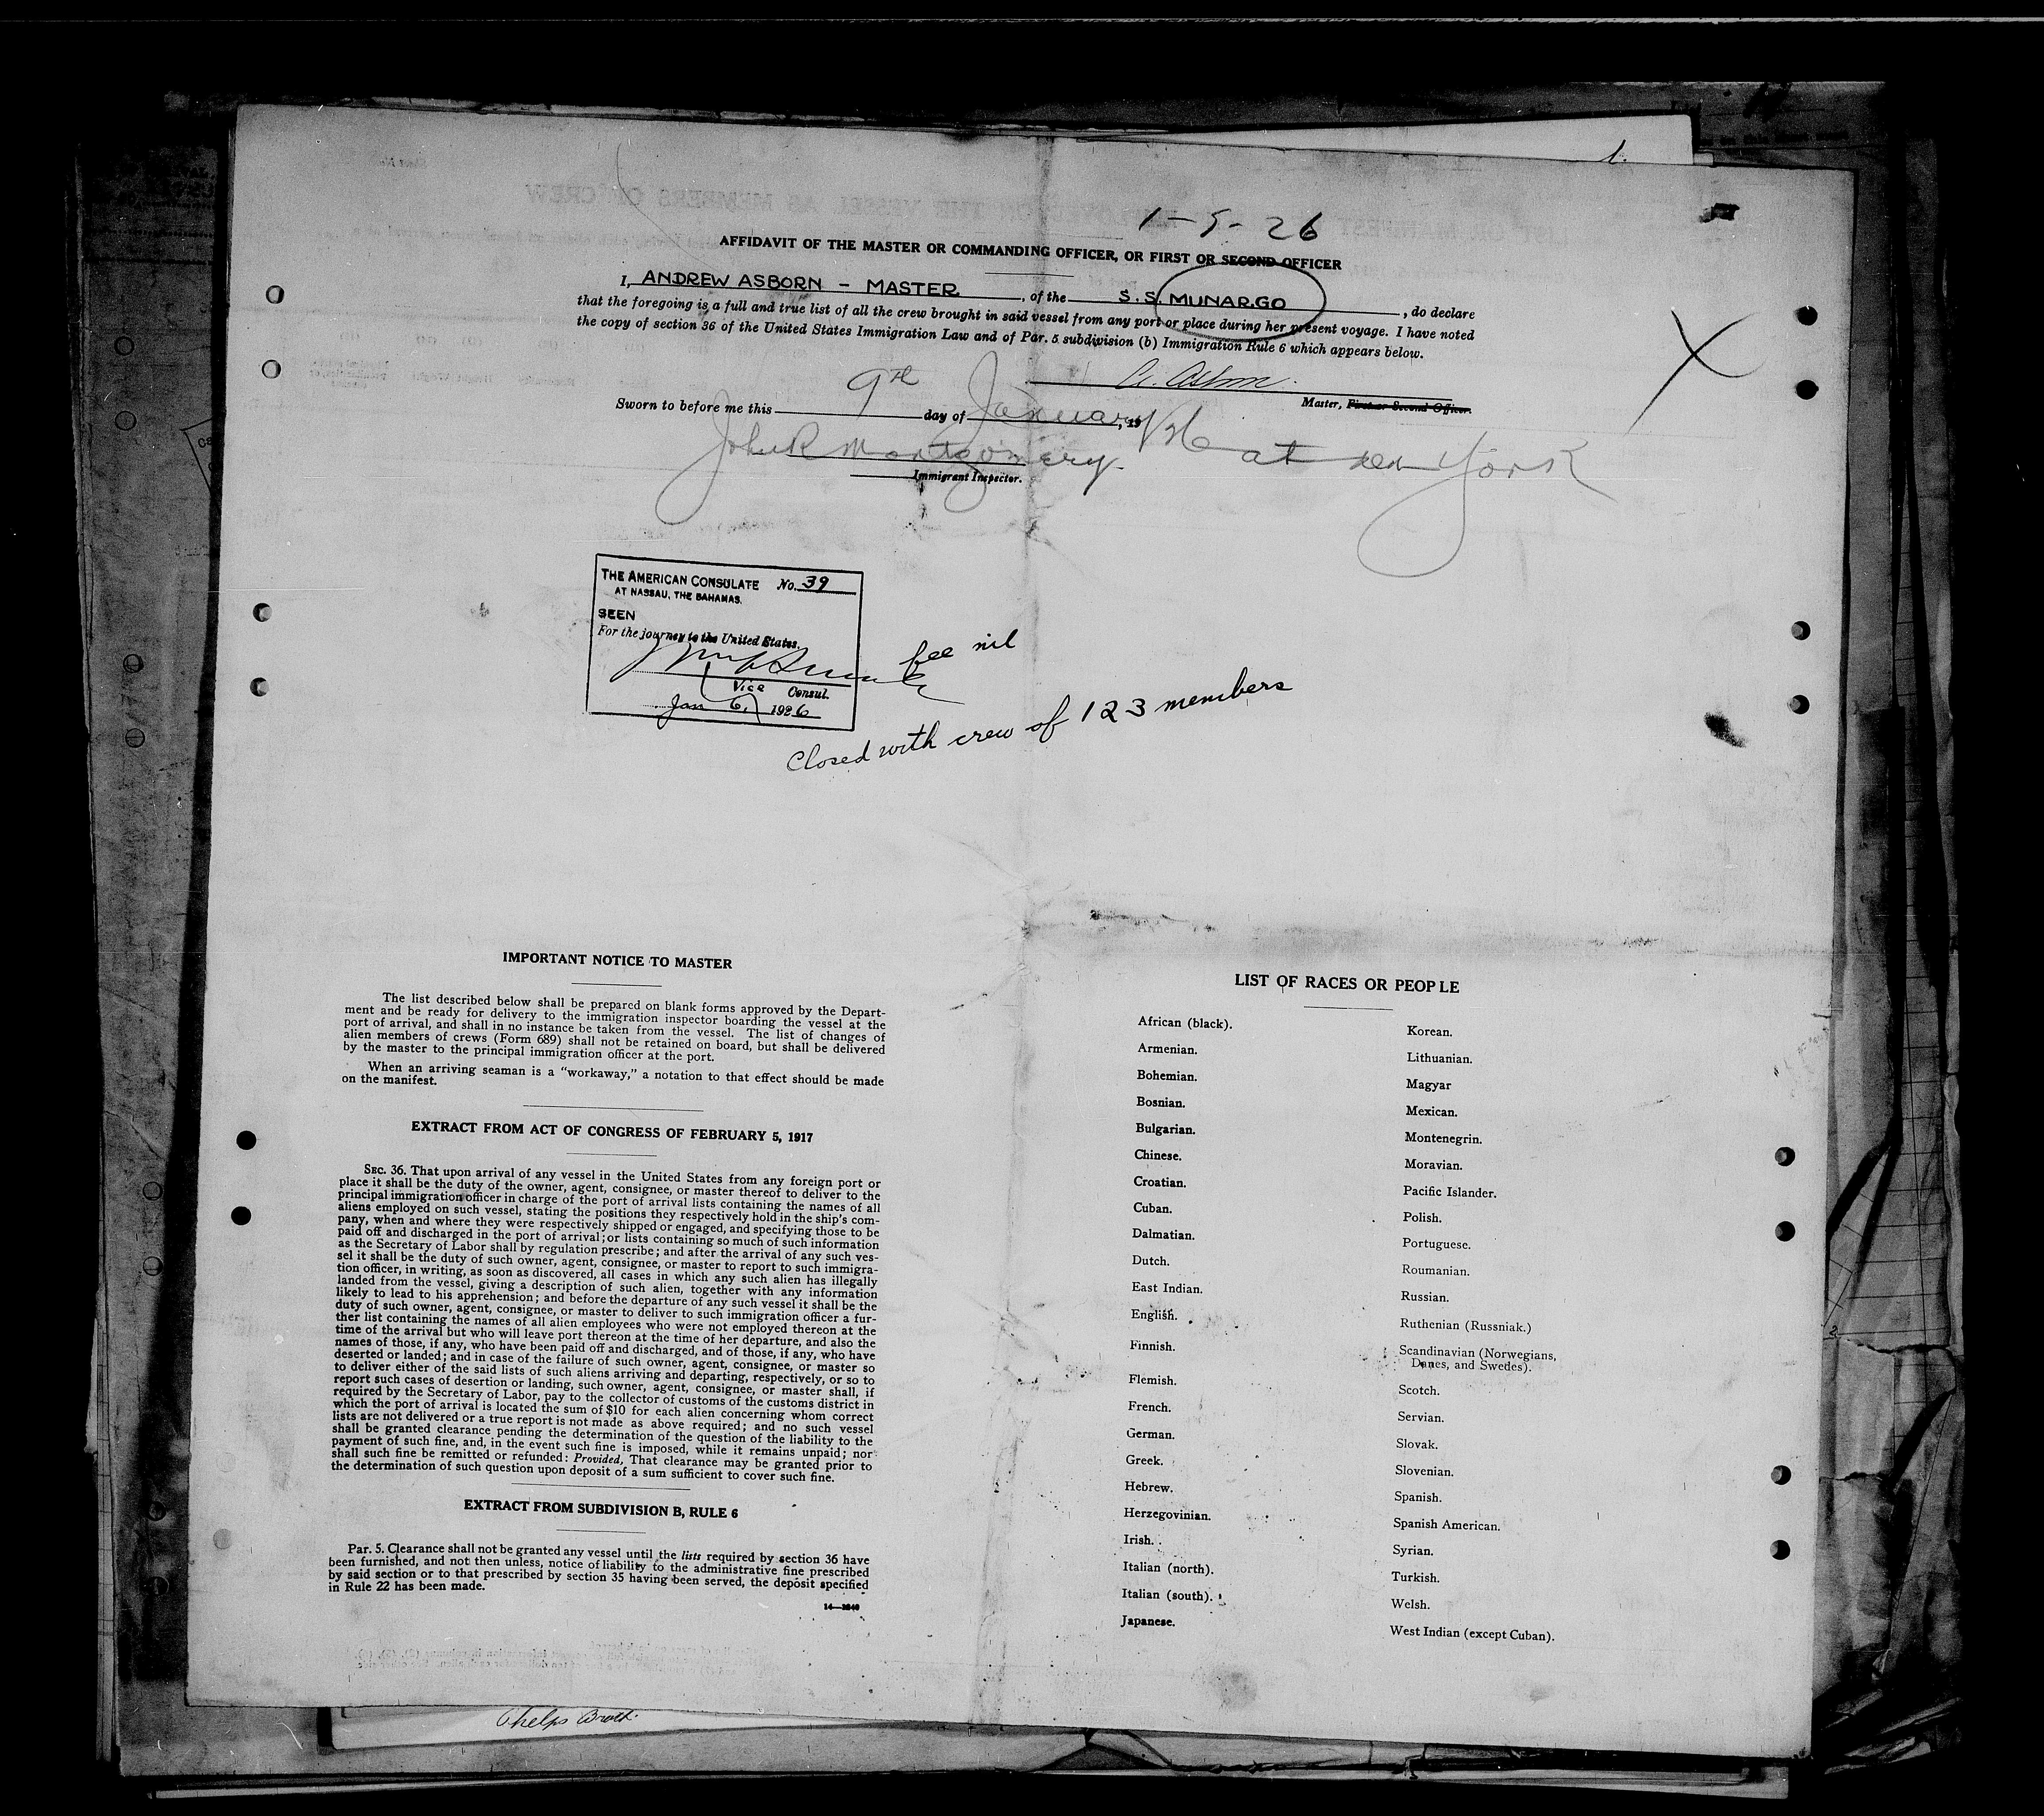 1-9-26
AFFIDAVIT OF THE MASTER OR COMMANDING OFFICER, OR FIRST OR SECOND OFFICER
I, ANDREW ASBORN - MASTER, of the S.S. MUNARGO, do declare
that the foregoing is a full and true list of all the crew brought in said vessel from any port or place during her present voyage. I have noted
the copy of section 36 of the United States Immigration Law and of Par. 5 subdivision (b) Immigration Rule 6 which appears below.
A. Asborn.
Master, First or Second Officer.
Sworn to before me this 9th day of January, 1926 at New York
John R Montgomery
Immigrant Inspector.
THE AMERICAN CONSULATE No. 39
AT NASSAU, THE BAHAMAS.
SEEN
For the journey to the United States.
fee nil
Vice Consul.
Jan 6, 1926
Closed with crew of 123 members
IMPORTANT NOTICE TO MASTER
The list described below shall be prepared on blank forms approved by the Depart-
ment and be ready for delivery to the immigration inspector boarding the vessel at the
port of arrival, and shall in no instance be taken from the vessel. The list of changes of
alien members of crews (Form 689) shall not be retained on board, but shall be delivered
by the master to the principal immigration officer at the port.
When an arriving seaman is a "workaway," a notation to that effect should be made
on the manifest.
EXTRACT FROM ACT OF CONGRESS OF FEBRUARY 5, 1917
SEC. 36. That upon arrival of any vessel in the United States from any foreign port or
place it shall be the duty of the owner, agent, consignee, or master thereof to deliver to the
principal immigration officer in charge of the port of arrival lists containing the names of all
aliens employed on such vessel, stating the positions they respectively hold in the ship's com-
pany, when and where they were respectively shipped or engaged, and specifying those to be
paid off and discharged in the port of arrival; or lists containing so much of such information
as the Secretary of Labor shall by regulation prescribe; and after the arrival of any such ves-
sel it shall be the duty of such owner, agent, consignee, or master to report to such immigra-
tion officer, in writing, as soon as discovered, all cases in which any such alien has illegally
landed from the vessel, giving a description of such alien, together with any information
likely to lead to his apprehension; and before the departure of any such vessel it shall be the
duty of such owner, agent, consignee, or master to deliver to such immigration officer a fur-
ther list containing the names of all alien employees who were not employed thereon at the
time of the arrival but who will leave port thereon at the time of her departure, and also the
names of those, if any, who have been paid off and discharged, and of those, if any, who have
deserted or landed; and in case of the failure of such owner, agent, consignee, or master so
to deliver either of the said lists of such aliens arriving and departing, respectively, or so to
report such cases of desertion or landing, such owner, agent, consignee, or master shall, if
required by the Secretary of Labor, pay to the collector of customs of the customs district in
which the port of arrival is located the sum of $10 for each alien concerning whom correct
lists are not delivered or a true report is not made as above required; and no such vessel
shall be granted clearance pending the determination of the question of the liability to the
payment of such fine, and, in the event such fine is imposed, while it remains unpaid; nor
shall such fine be remitted or refunded: Provided, That clearance may be granted prior to
the determination of such question upon deposit of a sum sufficient to cover such fine.
EXTRACT FROM SUBDIVISION B, RULE 6
Par. 5. Clearance shall not be granted any vessel until the lists required by section 36 have
been furnished, and not then unless, notice of liability to the administrative fine prescribed
by said section or to that prescribed by section 35 having been served, the deposit specified
in Rule 22 has been made.
LIST OF RACES OR PEOPLE
African (black).
Armenian.
Bohemian.
Bosnian.
Bulgarian.
Chinese.
Croatian.
Cuban.
Dalmatian.
Dutch.
East Indian.
English.
Finnish.
Flemish.
French.
German.
Greek.
Hebrew.
Herzegovinian.
Irish.
Italian (north).
Italian (south).
Japanese.
Korean.
Lithuanian.
Magyar
Mexican.
Montenegrin.
Moravian.
Pacific Islander.
Polish.
Portuguese.
Roumanian.
Russian.
Ruthenian (Russniak.)
Scandinavian (Norwegians,
Danes, and Swedes).
Scotch.
Servian.
Slovak.
Slovenian.
Spanish.
Spanish American.
Syrian.
Turkish.
Welsh.
West Indian (except Cuban).
Phelps